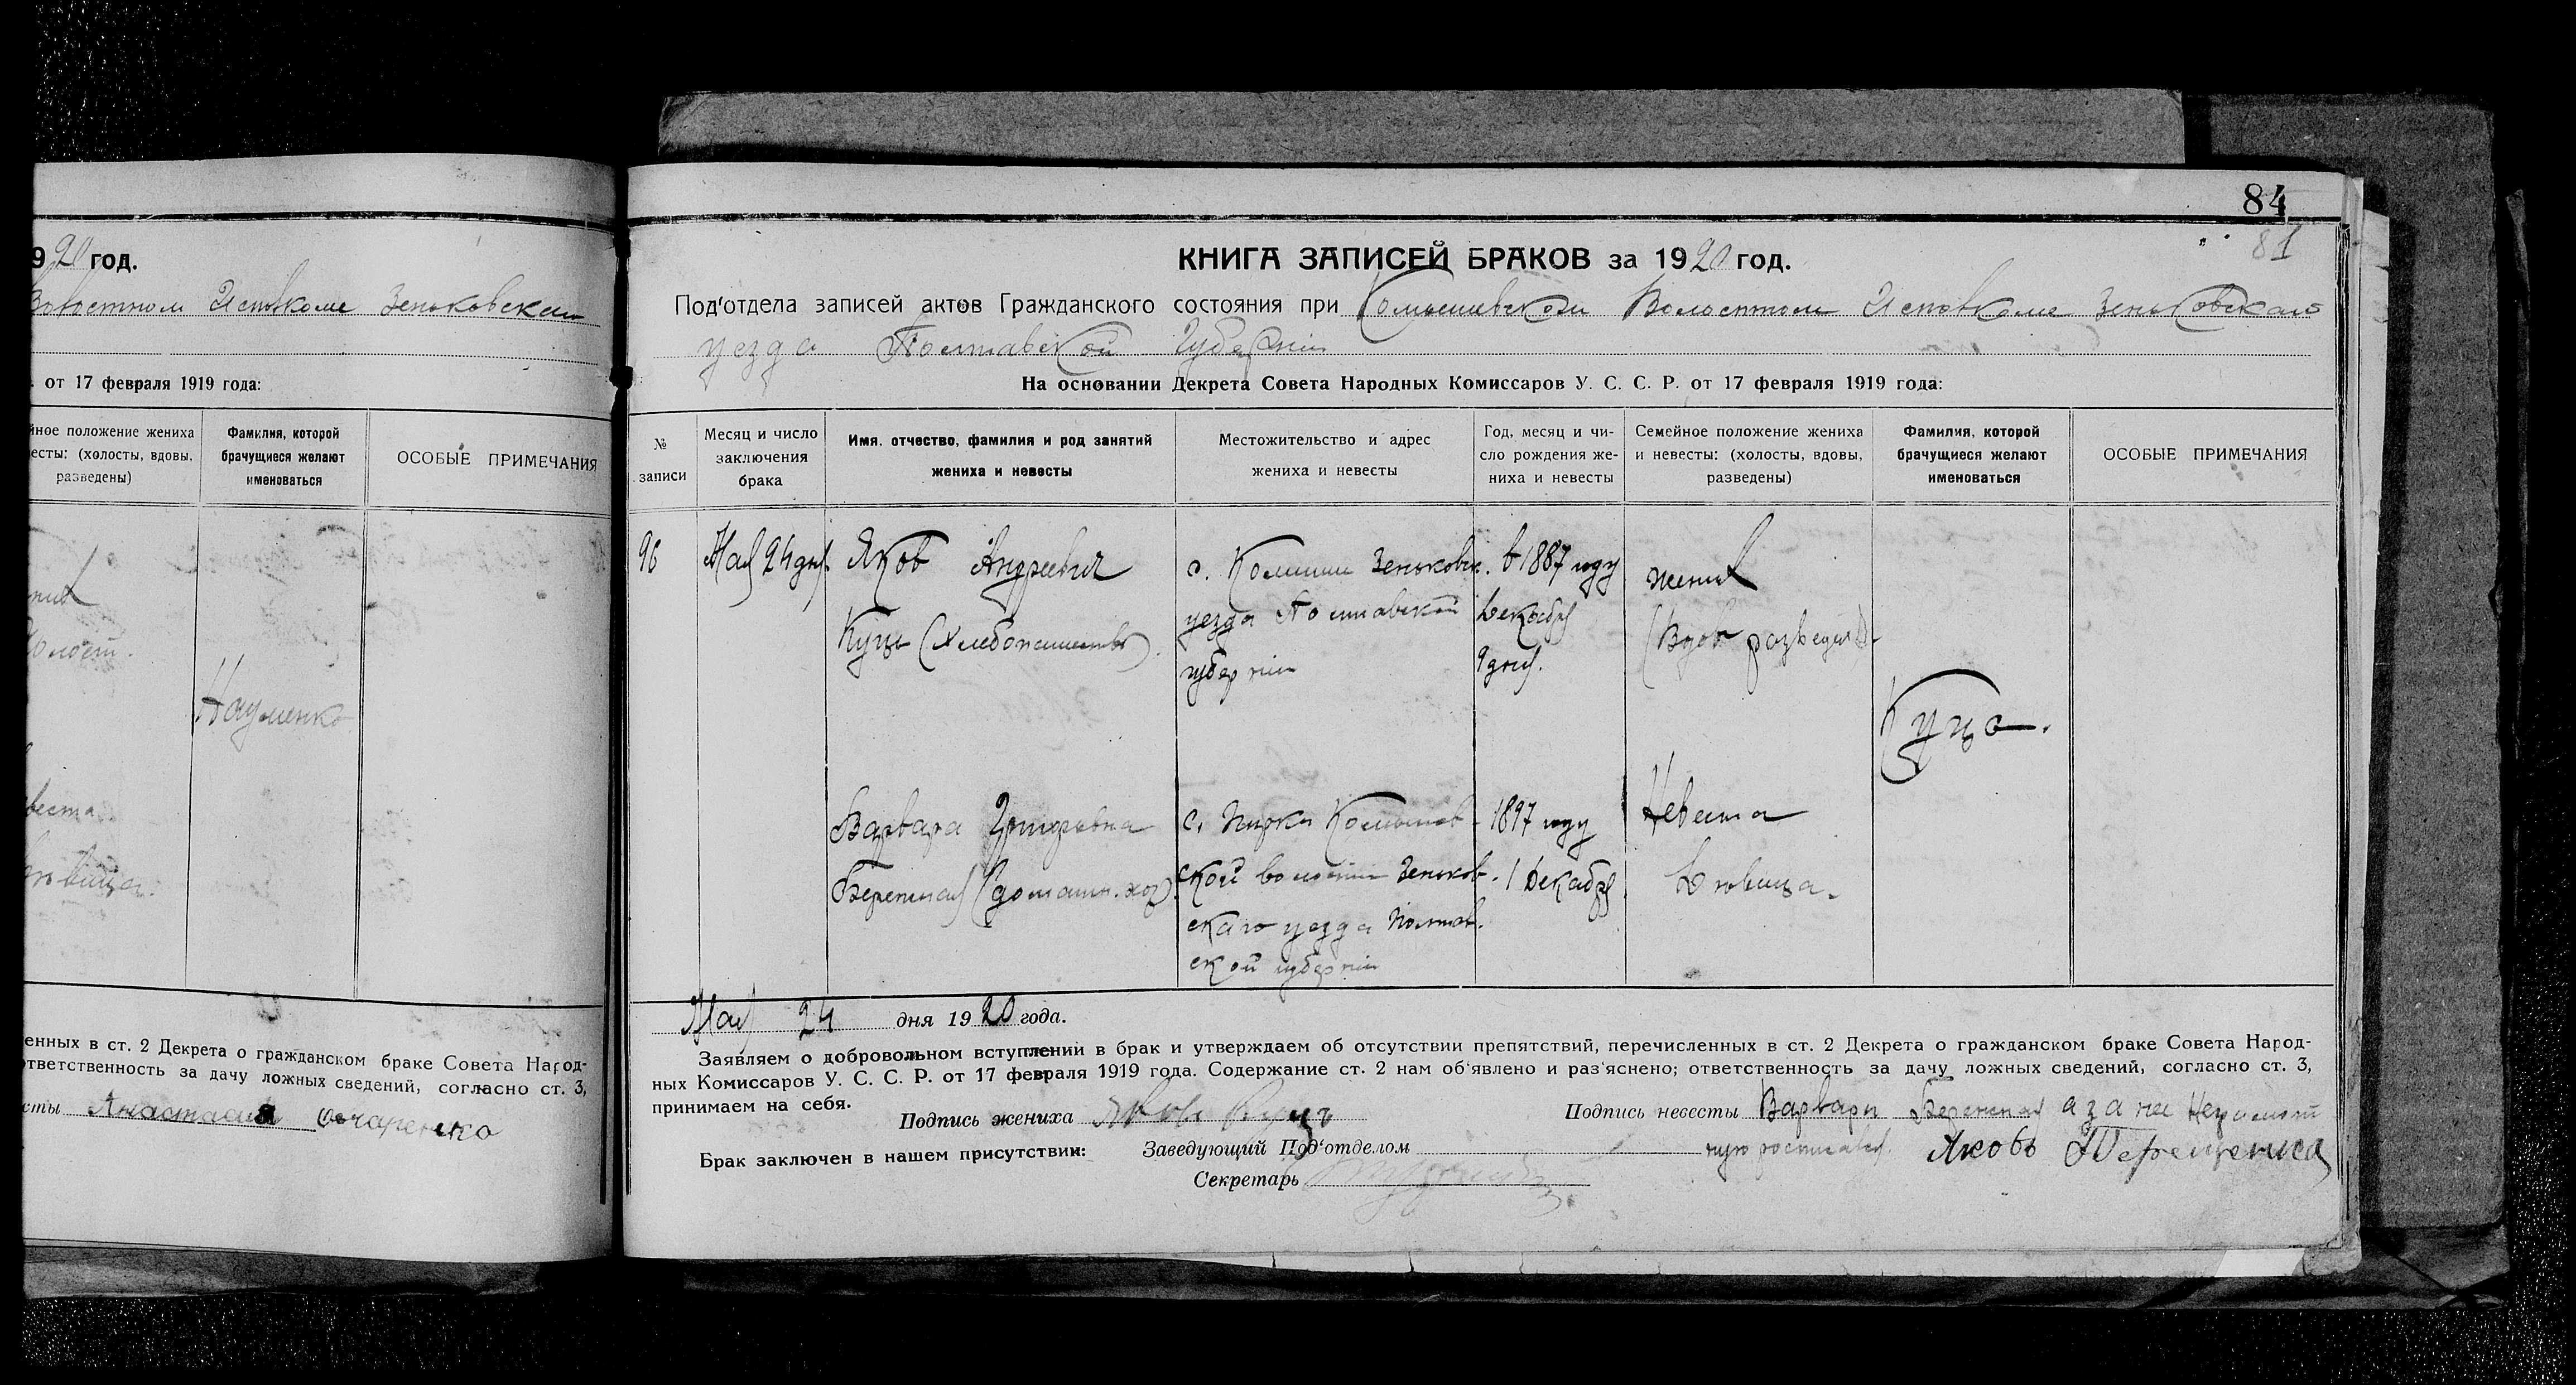 84
81
9 20 год.
Волостном Исполкоме Зеньковскаго
. от 17 февраля 1919 года:
йное положение жениха
есты: (холосты, вдовы,
разведены)
Фамилия, которой
брачущиеся желают
именоваться
ОСОБЫЕ ПРИМЕЧАНИЯ
Науменко
веста
енных в ст. 2 Декрета о гражданском браке Совета Народ-
ответственность за дачу ложных сведений, согласно ст. 3,
сты Анастасия Овчаренко
КНИГА ЗАПИСЕЙ БРАКОВ за 1920 год.
Под'отдела записей актов Гражданского состояния при Комышевском Волостном Исполкоме Зеньковскаго
уезда Полтавской Губернии
На основании Декрета Совета Народных Комиссаров У. С. С. Р. от 17 февраля 1919 года:
№
записи
Месяц и число
заключения
брака
Имя, отчество, фамилия и род занятий
жениха и невесты
Местожительство и адрес
жениха и невесты
Год, месяц и чи-
сло рождения же-
ниха и невесты
Семейное положение жениха
и невесты: (холосты, вдовы,
разведены)
Фамилия, которой
брачущиеся желают
именоваться
ОСОБЫЕ ПРИМЕЧАНИЯ
96
Мая 24 дня.
Яков Андреевич
Куць (Хлебопашество).
с. Комыши Зеньковск.
уезда Полтавской
губернии
в 1887 году
Декабря
9 дня.
жених
Куца.
Варвара
(домашн. хоз)
с. Комышев-
ской волости Зеньков-
скаго уезда Полтав-
ской губернии
1897 году
1 Декабря
Невеста
Девица.
Мая 24 дня 1920 года.
Заявляем о добровольном вступлении в брак и утверждаем об отсутствии препятствий, перечисленных в ст. 2 Декрета о гражданском браке Совета Народ-
ных Комиссаров У. С. С. Р. от 17 февраля 1919 года. Содержание ст. 2 нам об'явлено и раз'яснено; ответственность за дачу ложных сведений, согласно ст. 3,
принимаем на себя.
Подпись жениха Яков Куць
Подпись невесты Варвара а за нее неграмот
ную росписався. Яковъ Терещенко
Брак заключен в нашем присутствии:
Заведующий Под'отделом
Секретарь